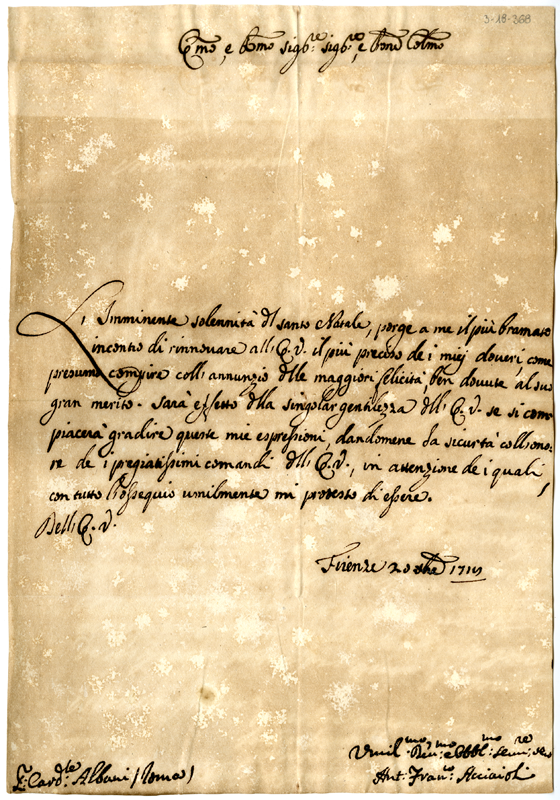 3-18-368
Em̃o, e Rmo Sigr: Sigre, e Prone Colmo
L' Imminente solennità dl santo Natale, porge a me il più bramato
incontro di rinnovare all'E.V. il più preciso de i miej doveri, come
presumo compire coll'annunzio dlle maggiori felicità ben dovute al suo
gran merito. Sarà effetto dlla singolar gentilezza dll'E.V. se si com,
piacerà gradire queste mie espressioni, dandomene la sicurtà coll'ono,
re de i pregiatissimi comandi dll'E.V., in attenzione de i quali
con tutto l'ossequio umilmente mi protesto di essere.
Dell'E.V.
Firenze 20 Xbre
Sr: Cardle: Albani (Roma)
Umilmo: Divmo: e Obblmo: Servre:
Ant. Franco: Acciaioli